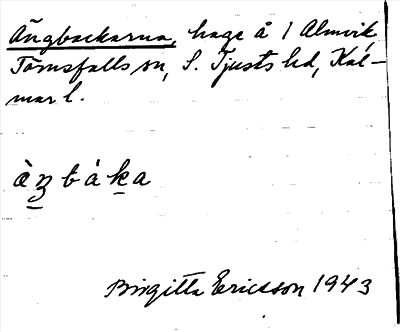 Ängbackarna, hage å 1 Almvik
Törnsfalls sn, S. Tjusts hd, Kal-
mar l.
àŋbáka
Birgitta Ericsson 1943